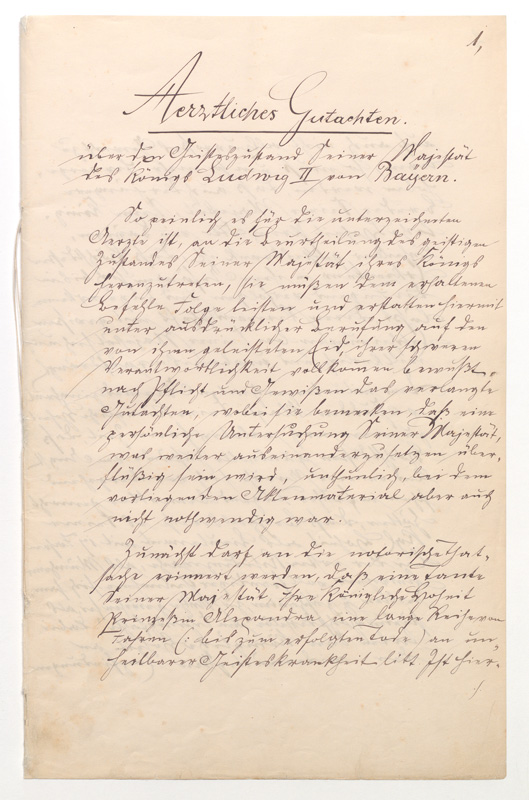 1,
Aerztliches Gutachten.
über den Geisteszustand Seiner Majestät
des Königs Ludwig II von Bayern.
So peinlich es für die unterzeichneten
Aerzte ist, an die Beurtheilung des geistigen
Zustandes Seiner Majestät ihres Königs
heranzutreten, sie müßen dem erhaltenen
Befehle Folge leisten und erstatten hiermit
unter ausdrücklicher Berufung auf den
von ihnen geleisteten Eid, ihrer schweren
Verantwortlichkeit vollkomen bewußt,
nach Pflicht und Gewißen das verlangte
Gutachten, wobei sie bemerken, daß eine
persönliche Untersuchung Seiner Majestät,
was weiter auseinanderzusetzen über„
flüßig sein wird, unthunlich, bei dem
vorliegenden Aktenmaterial aber auch
nicht nothwendig war.
Zunächst darf an die notorische That„
sache erinnert werden, daß eine Tante
Seiner Majestät, Ihre Königliche Hoheit
Prinzeßin Alexandra eine lange Reihe von
Jahren (: bis zum erfolgten Tode) an un„
heilbarer Geisteskrankheit litt Ist hier„